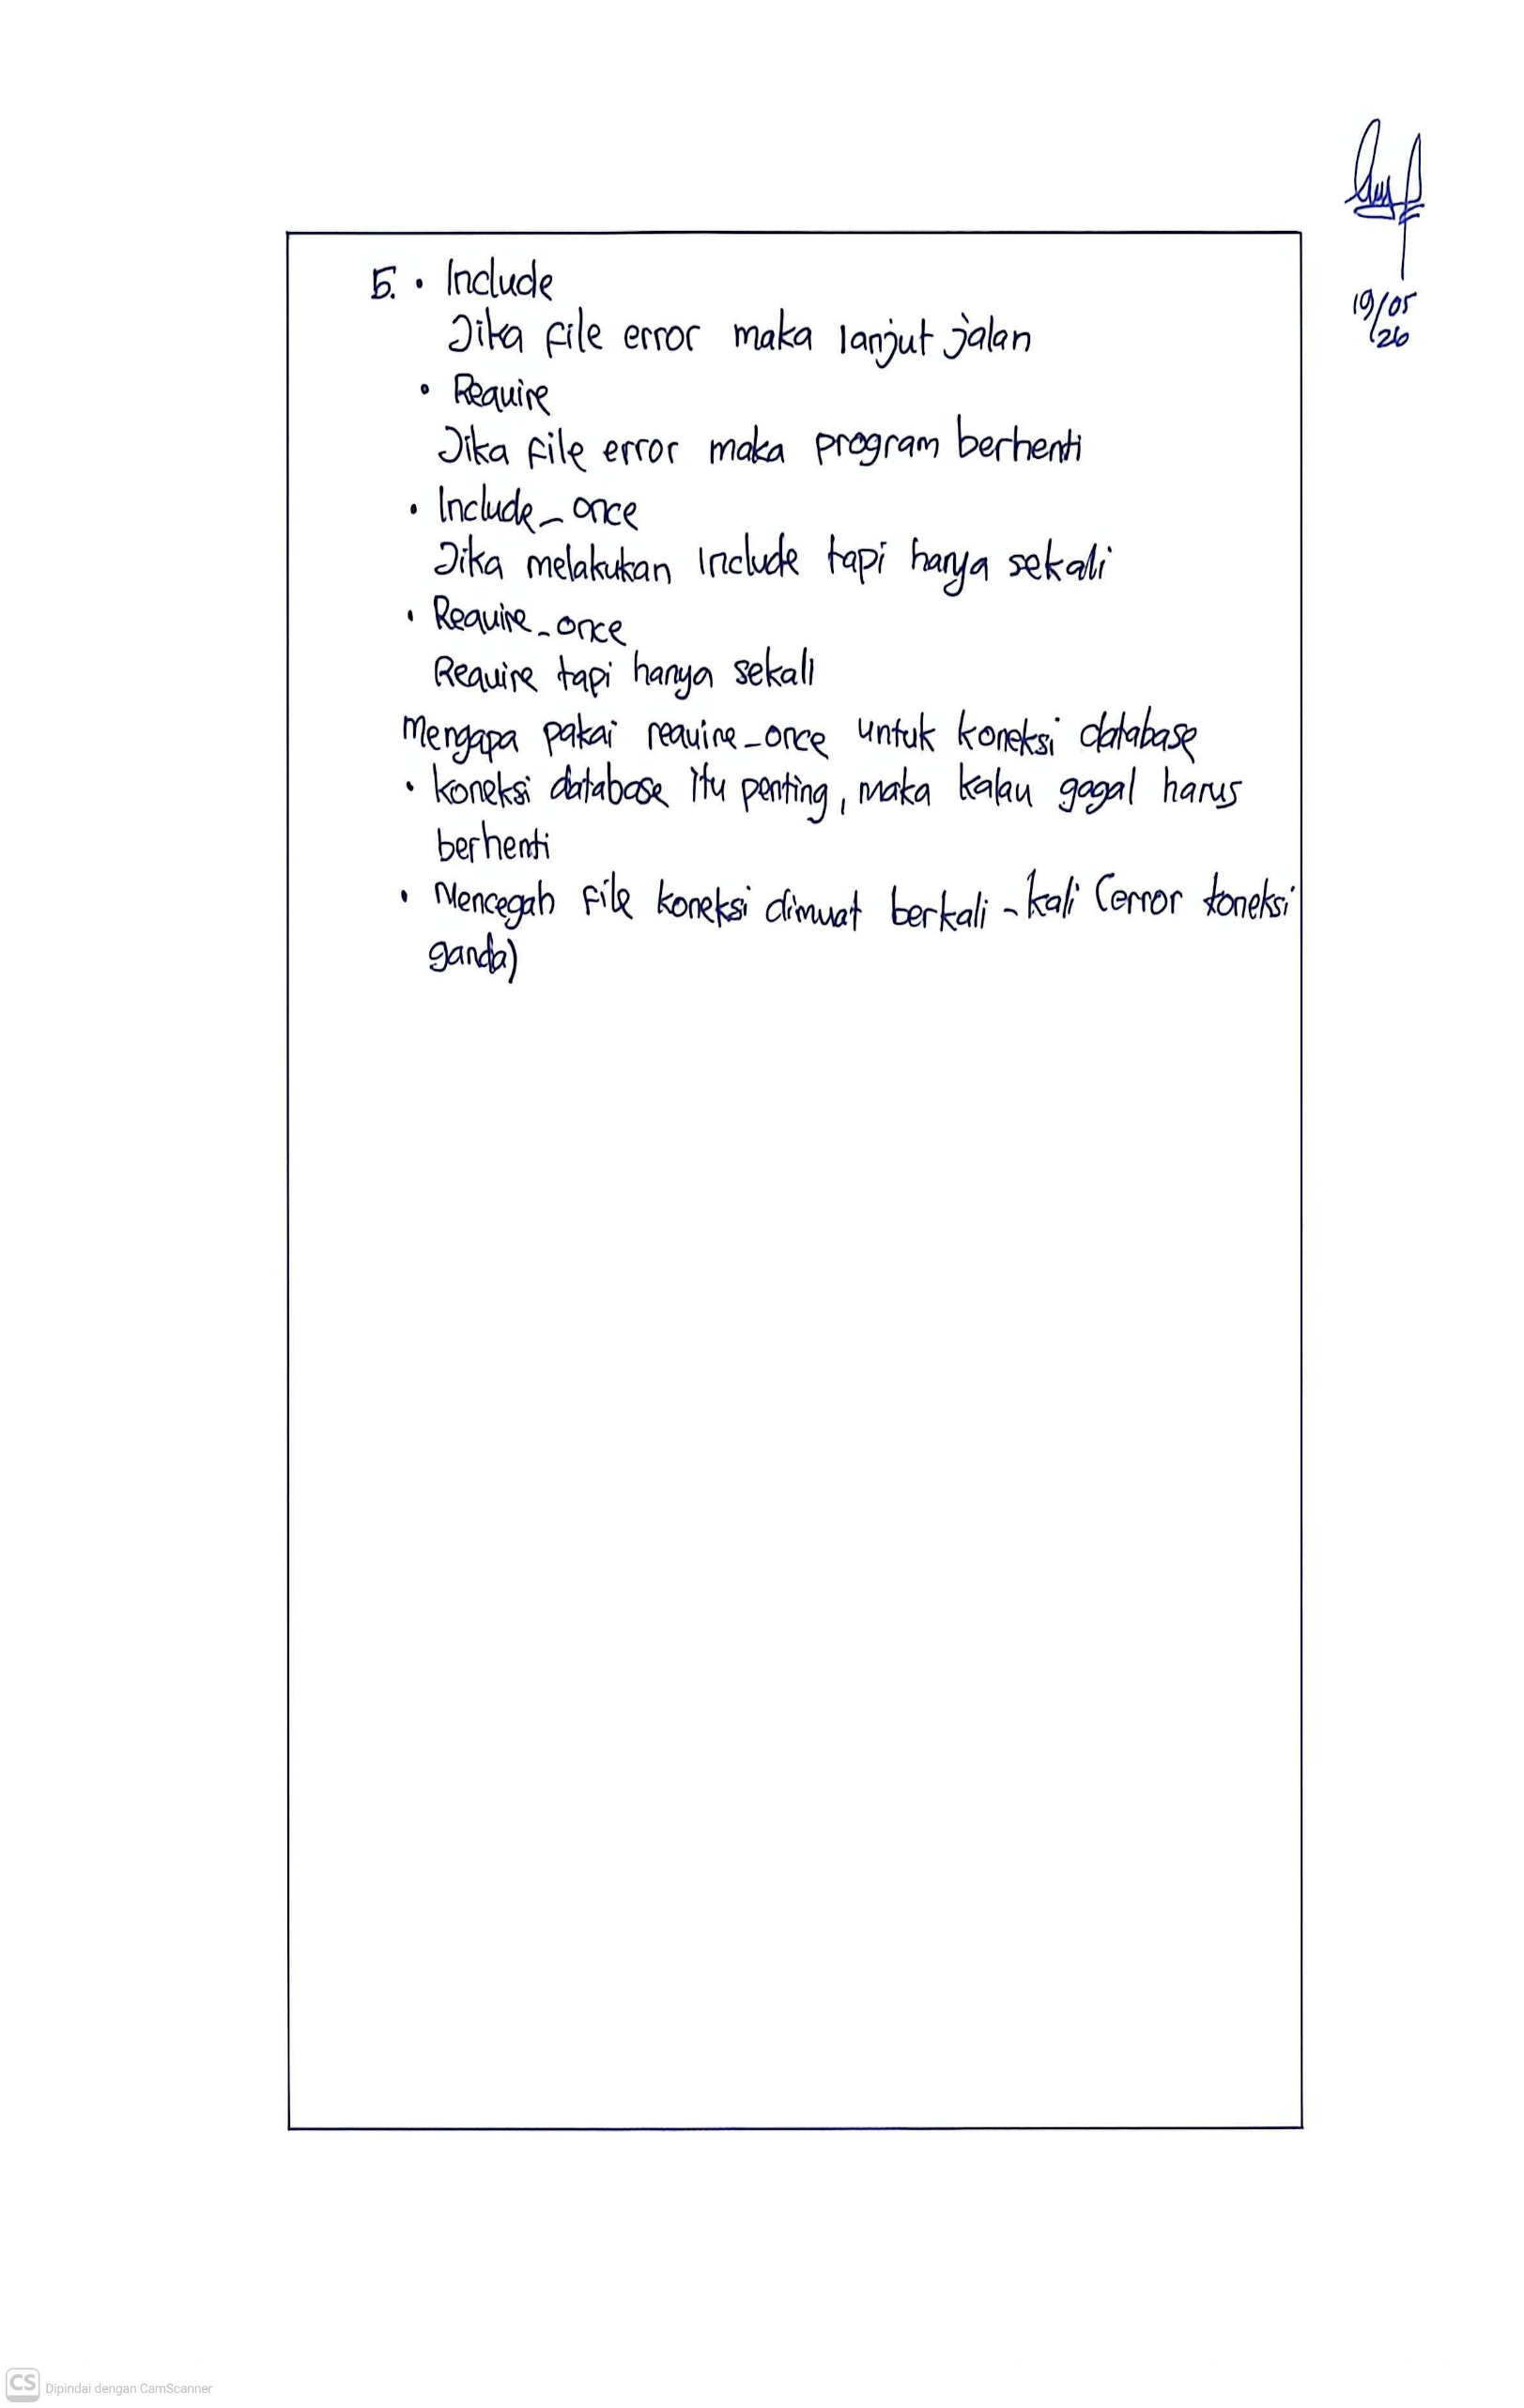 5. • Include
Jika file error maka lanjut jalan
• Require
Jika file error maka program berhenti
• Include_once
Jika melakukan include tapi hanya sekali
• Require_once
Require tapi hanya sekali
Mengapa pakai require_once untuk koneksi database
• Koneksi database itu penting, maka kalau gagal harus
berhenti
• Mencegah file koneksi dimuat berkali-kali (error koneksi
ganda)
19/05
/26
CS Dipindai dengan CamScanner